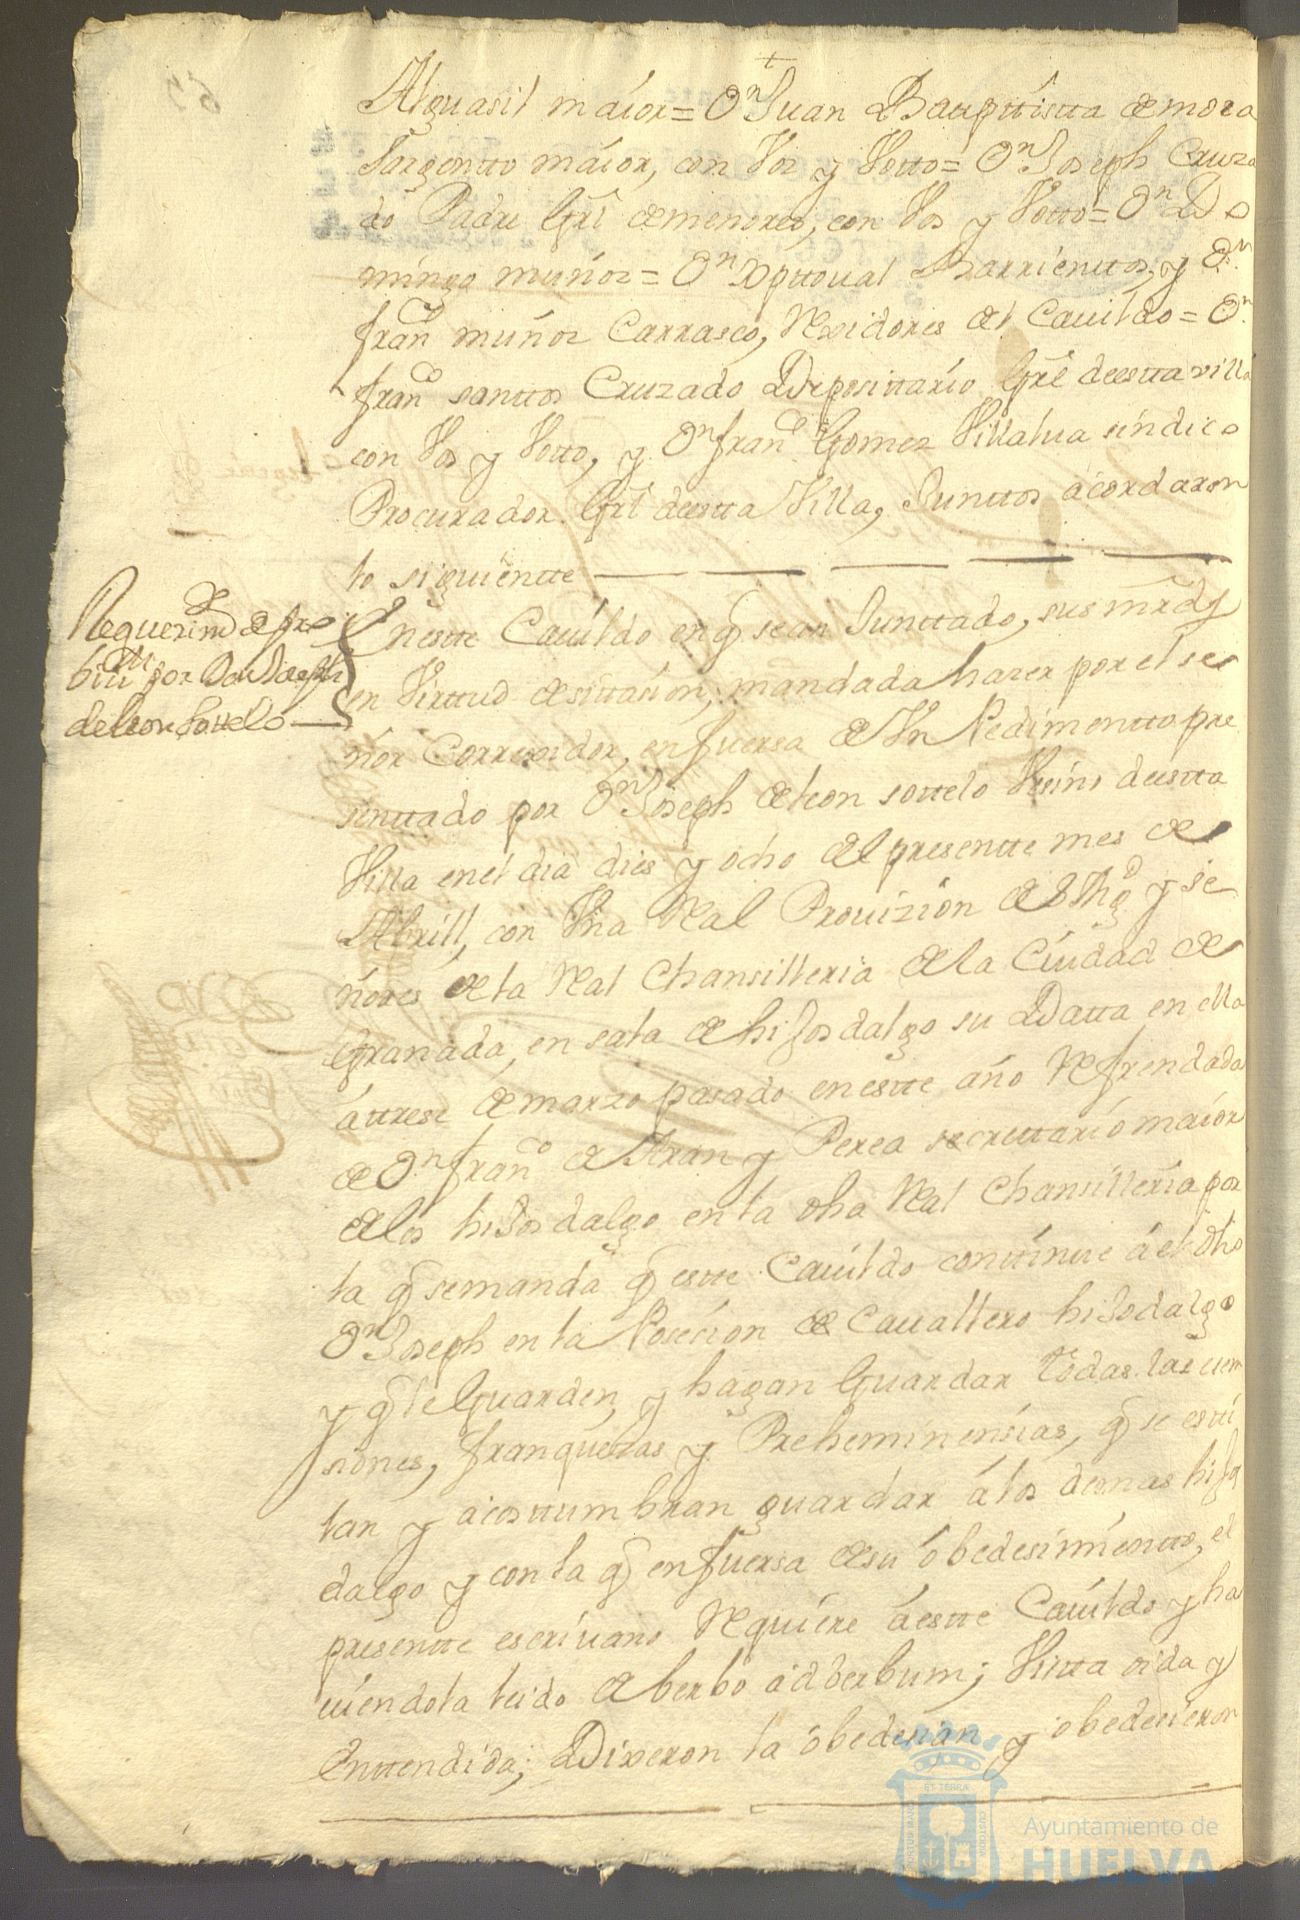 Alguasil maior = Dn Juan Bauptistta de mora
Sargentto maior, con Vos y Votto = Dn Joseph Cruza
do Padre Grl de menores, con Vos y Votto = Dn Do
mingo muños = Dn Xpttoual Barrienttos, y Dn
Franco muños Carrasco, Rexidores del Cauildo = Dn
Franco santtos Cruzado Deposittario Grl deestta villa
con Vos y Votto, y Dn Franco Gomes Villalua síndico
Procurador Grl deestta Villa, Junttos acordaron
lo siguientte
Requerimto de
por Dn Joseph
de leon Sottelo
Enestte Cauildo en q se an Junttado, sus mrds
en Virttud de sittasion, mandada hazer por el se
ñor Correxidor, en fuersa de Vn Pedimentto pre
senttado por Dn Joseph de leon sottelo Vesino deestta
Villa en el dia dies y ocho del presentte mes de
Abrill, con Vna Real Prouizion de S Sia y se
ñores de la Real Chansilleria de la Ciudad de
Granada, en sala de hijosdalgo su Datta en ella
a ttrese de marzo pasado en estte año Refrendada
de Dn Franco de Aran y Perea secrettario maior
de los hiJosdalgo en la dha Real Chansilleria por
la q se manda q estte Cauildo conttinue a el dho
Dn Joseph en la Posecion de Cauallero hiJodalgo
y q le Guarden, y hagan Guardar ttodas las exem
siones, franquezas y Preheminensias, q se esti
lan y acosttumbran guardar a los demas hijos
dalgo y con la q en fuersa de su obedesimientto, el
presentte escriuano Requiere a estte Cauildo y ha
uiendola leido de berbo adberbum; Vistta oida y
Enttendida; Dixeron la obedesian y obedecieron
Ayuntamiento de
HUELVA